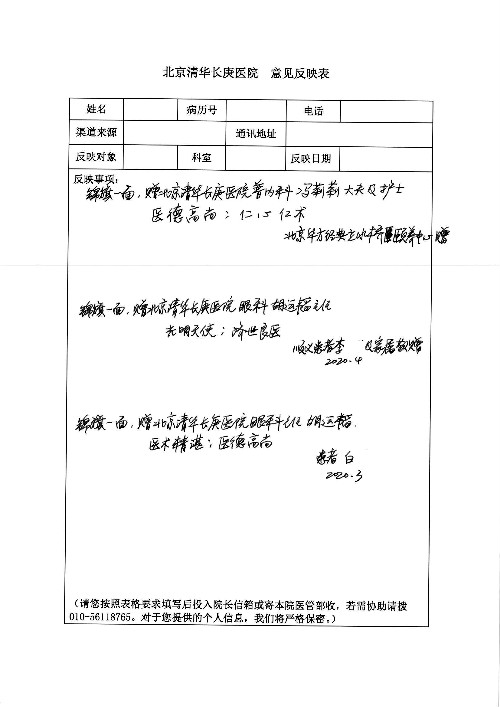 北京清华长庚医院 意见反映表
姓名 病历号 电话
渠道来源 通讯地址
反映对象 科室 反映日期
反映事项：
锦旗一面，赠北京清华长庚医院普内科冯莉莉大夫及护士
医德高尚；仁心仁术
北京华方经典立水桥颐养中心赠
锦旗一面，赠北京清华长庚医院眼科胡运韬主任
光明天使；济世良医
顺义患者李 及家属敬赠
2020.4
锦旗一面，赠北京清华长庚医院眼科主任胡运韬
医术精湛；医德高尚
患者 白
2020.3
（请您按照表格要求填写后投入院长信箱或寄本院医管部收，若需协助请拨
010-56118765。对于您提供的个人信息，我们将严格保密。）